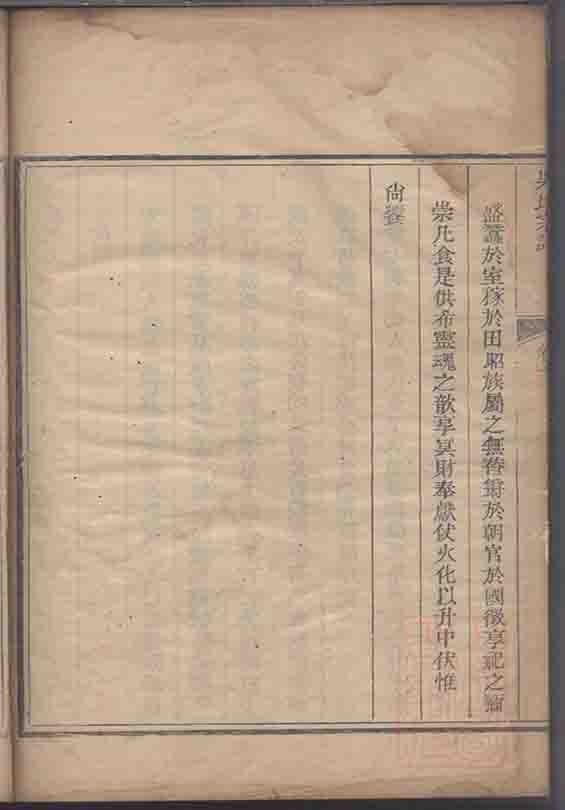 盛蠶於室稼於田昭族屬之無替爵於朝官於國徵享祀之
崇凡食是供希靈魂之歆享冥財奉獻仗火化以升中伏惟
尚饗